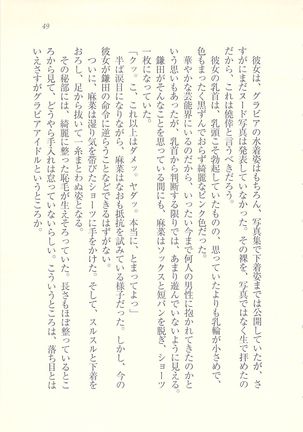 49
彼女は、グラビアの水着姿はもちろん、写真集で下着姿までは公開していたが、さ
すがにまだヌード写真は発表していなかった。その裸を、写真ではなく生で拝めたの
だから、これは僥倖と言うべきだろう。
彼女の乳首は、乳頭こそ勃起していたものの、思っていたよりも乳輪が小さめで、
色もまったく黒ずんでおらず綺麗なピンク色だった。
華やかな芸能界にいるのだから、いったい今まで何人の男性に抱かれてきたのかと
いう思いもあったが、乳首から判断する限りでは、あまり遊んでいないように見える。
鎌田がそんなことを思っている間にも、麻菜はソックスと短パンを脱ぎ、ショーツ
一枚になっていた。
「クッ。こ、これ以上はダメッ。ヤダッ。本当に、とまってよっ」
半ば涙目になりながら、麻菜はなおも抵抗を試みている様子だった。しかし、今の
彼女が鎌田の命令に逆らうことなどできるはずがない。
ついに、麻菜は湿り気を帯びたショーツに手をかけた。そして、スルスルと下着を
おろし、足から抜いて一糸まとわぬ姿となる。
その秘部には、綺麗に整った恥毛が生えそろっていた。長さもほぼ整っているとこ
ろから見て、どうやら手入れは怠っていないらしい。こういうところは、落ち目とは
いえさすがグラビアアイドルというところか。